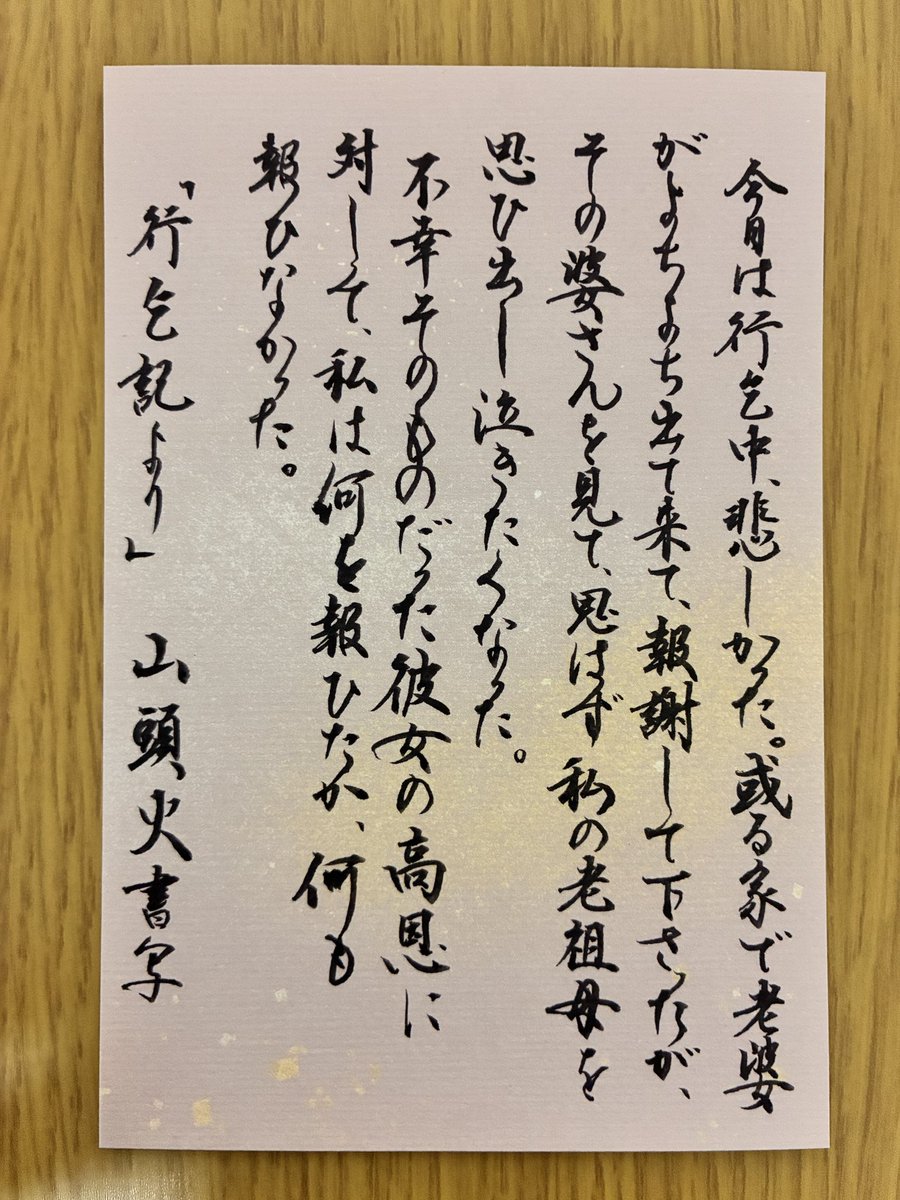 今日は行乞中、悲しかつた。或る家で老婆
がよちよち出て来て、報謝して下さつたが、
その婆さんを見て、思はず私の老祖母を
思ひ出し泣きたくなつた。
不幸そのものだつた彼女の高恩に
対して、私は何を報ひたか、何も
報ひなかつた。
「行乞記より」 山頭火書写